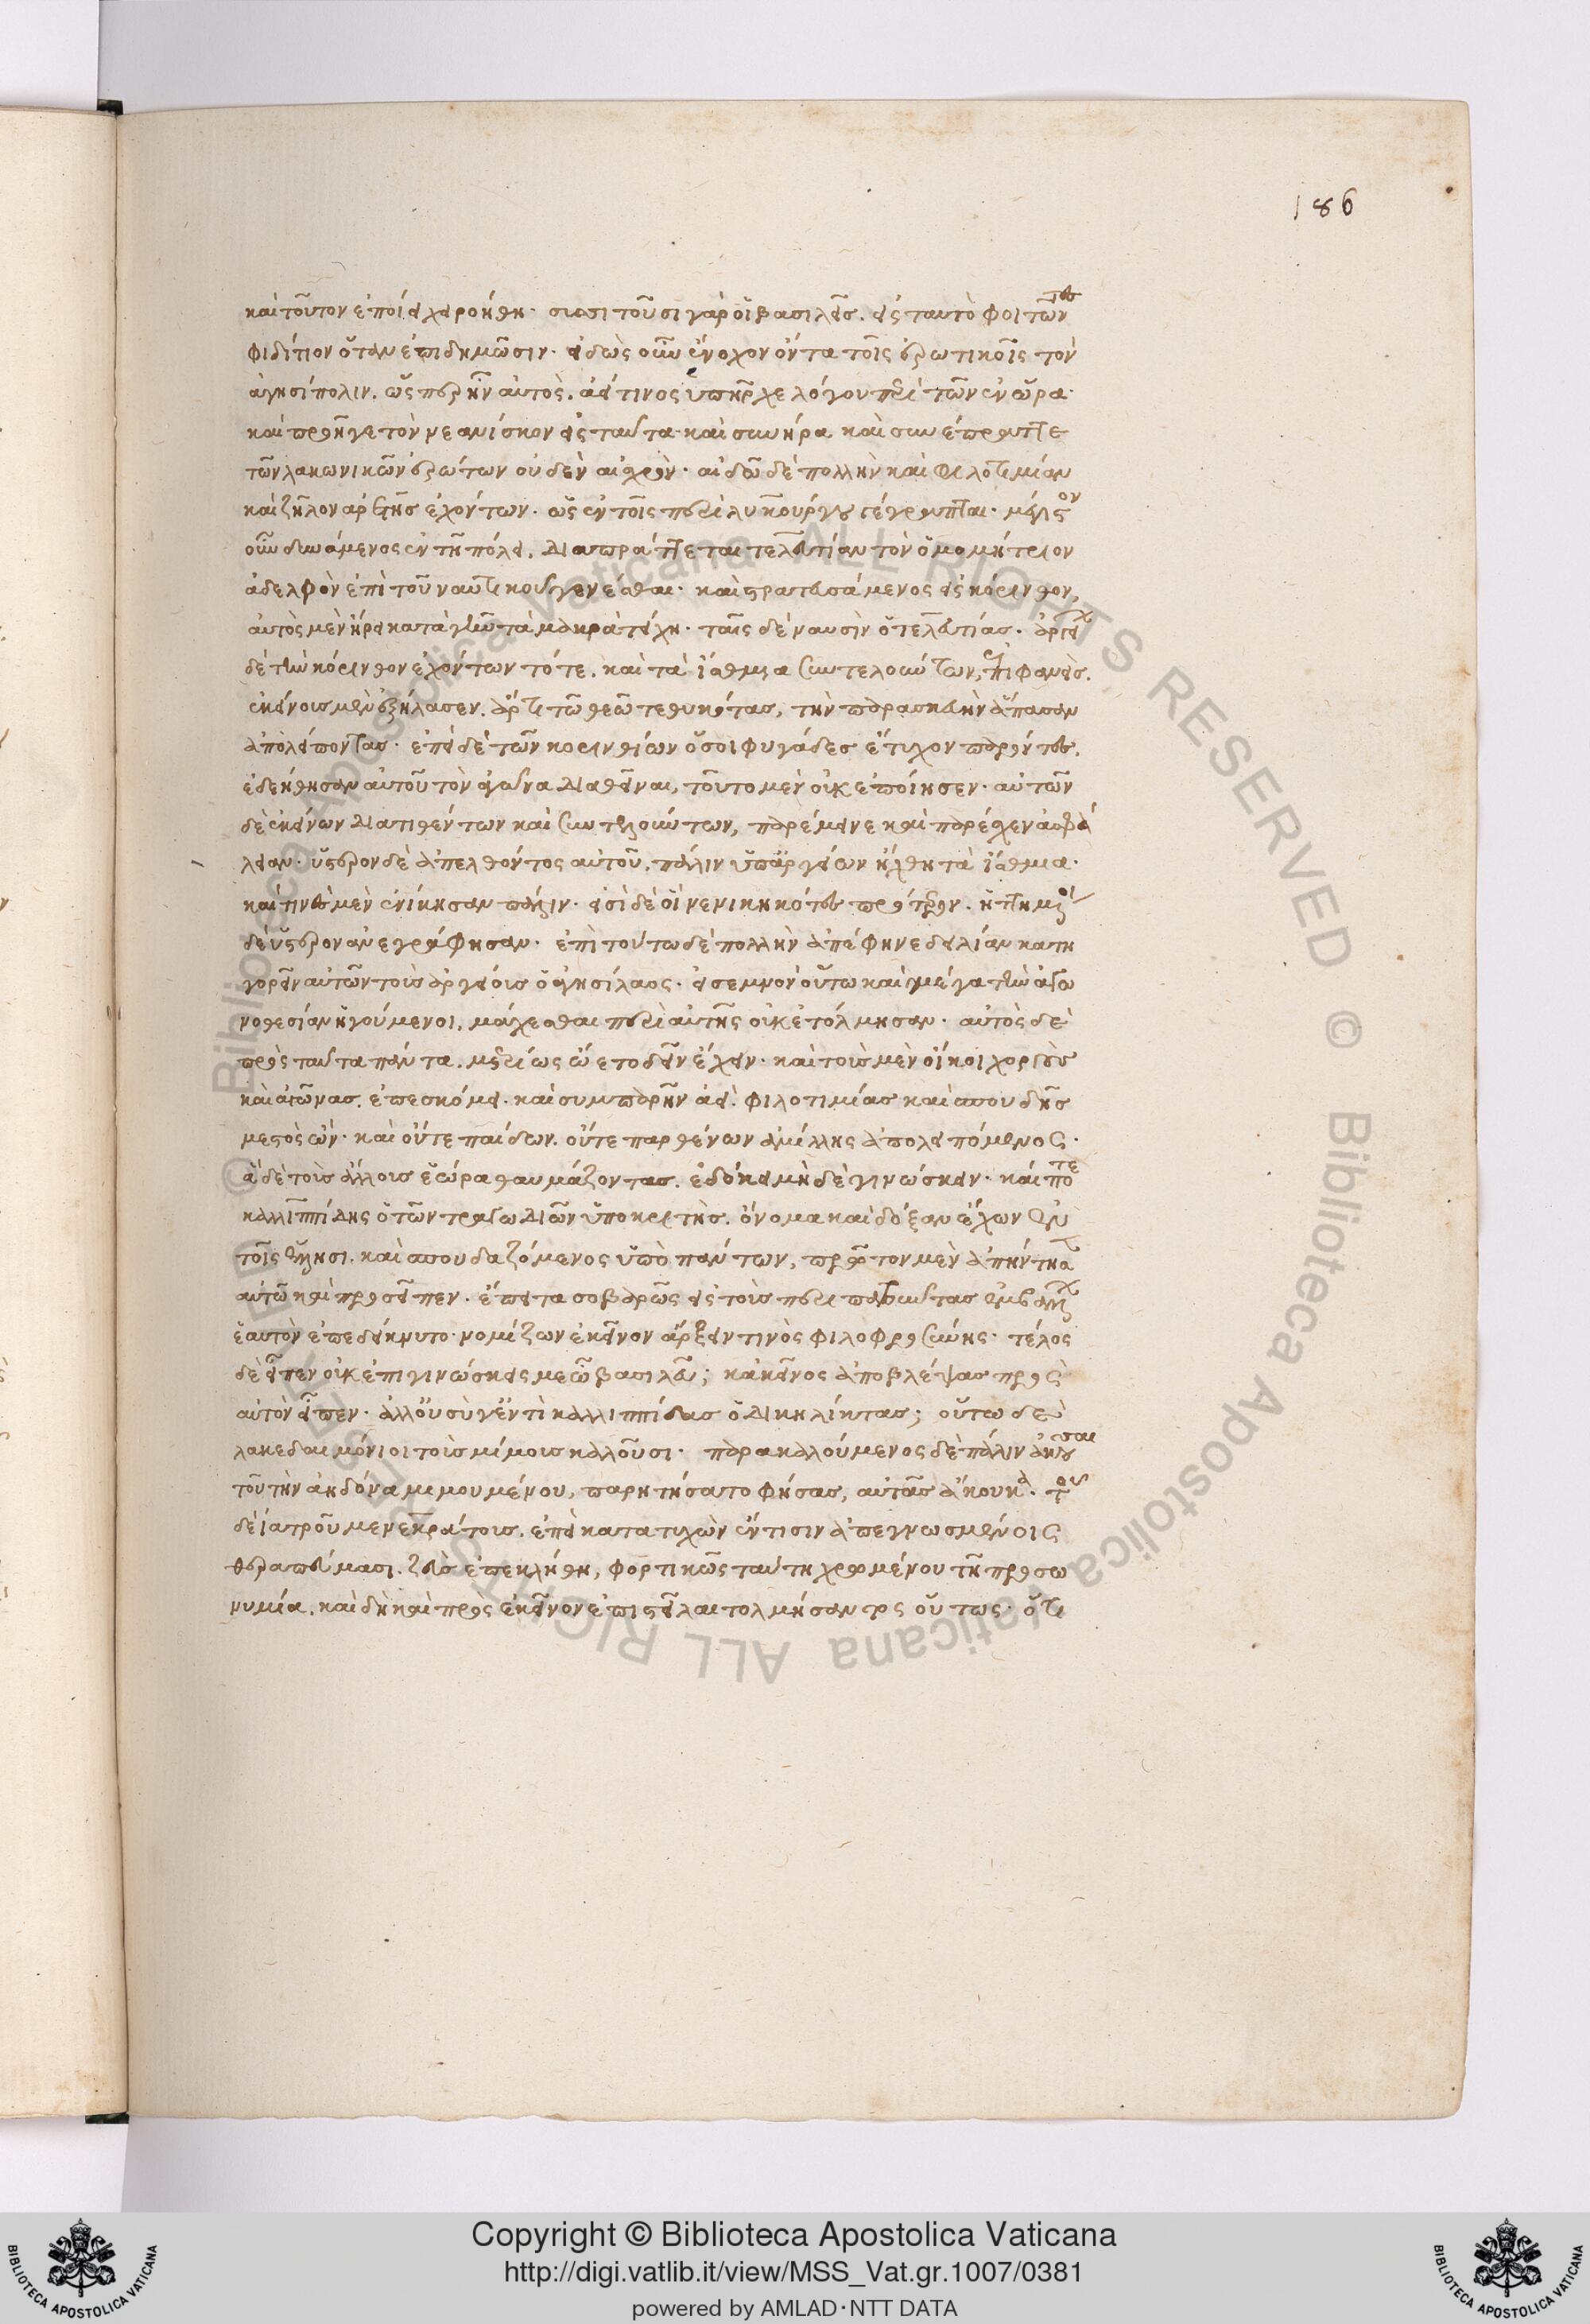 186
καὶ τοῦτον ἐποίει χειροήθη· συσσιτοῦσι γὰρ οἱ βασιλεῖς. εἰς ταυτὸ φοιτῶντες
φιδίτιον ὅταν ἐπιδημῶσιν· εἰδὼς οὖν ἔνοχον ὄντα τοῖς ἐρωτικοῖς τὸν
ἀγησίπολιν. ὥσπερ ἦν αὐτὸς. ἀεί τινος ὑπῆρχε λόγου περὶ τῶν ἐν ὥρα·
καὶ προῆγε τὸν νεανίσκον εἰς ταῦτα καὶ συνήρα καὶ συνέπραττε
τῶν λακωνικῶν ἐρώτων οὐδὲν αἰσχρὸν· αἰδῶ δὲ πολλὴν καὶ φιλοτιμίαν
καὶ ζῆλον ἀρετῆς ἐχόντων· ὡς ἐν τοῖς περὶ λυκούργου γέγραπται· μέγιστον
οὖν δυνάμενος ἐν τῆ πόλει, διαπράττεται τελευτίαν τὸν ὁμομήτριον
ἀδελφὸν ἐπὶ τοῦ ναυτικοῦ γενέσθαι· καὶ στρατευσάμενος εἰς κόρινθον,
αὐτὸς μὲν ἥρει κατὰ γῆν τὰ μακρὰ τείχη· ταῖς δὲ ναυσὶν ὁ τελευτίας· ἀργείων
δὲ τὴν κόρινθον ἐχόντων τότε. καὶ τὰ ἴσθμια συντελούντων, ἐπιφανεὶς.
ἐκείνους μὲν ἐξήλασεν. ἄρτι τῶ θεῶ τεθυκότας, τὴν παρασκευὴν ἅπασαν
ἀπολείποντας· ἐπεὶ δὲ τῶν κορινθίων ὅσοι φυγάδες ἔτυχον παρόντες.
ἐδεήθησαν αὐτοῦ τὸν ἀγῶνα διαθεῖναι, τοῦτο μὲν οὐκ ἐποίησεν· αὐτῶν
δὲ ἐκείνων διατιθέντων καὶ συντελούντων, παρέμεινε καὶ παρέσχεν ἀσφά
λειαν· ὕστερον δὲ ἀπελθόντος αὐτοῦ. πάλιν ὑπ' ἀργείων ἤχθη τὰ ἴσθμια·
καί τινες μὲν ἐνίκησαν πάλιν· εἰσὶ δὲ οἳ νενικηκότες πρότερον. ἡττημένοι
δὲ ὕστερον ἀνεγράφησαν· ἐπὶ τούτω δὲ πολλὴν ἀπέφηνε δειλίαν κατη
γορεῖν αὐτῶν τοὺς ἀργείους ὁ ἀγησίλαος· εἰ σεμνὸν οὕτω καὶ μέγα τὴν ἀγω
νοθεσίαν ἡγούμενοι, μάχεσθαι περὶ αὐτῆς οὐκ ἐτόλμησαν· αὐτὸς δὲ
πρὸς ταῦτα πάντα. μετρίως ὤετο δεῖν ἔχειν· καὶ τοὺς μὲν οἴκοι χοροὺς
καὶ ἀγῶνας. ἐπεκόσμει· καὶ συμπαρῆν ἀεὶ. φιλοτιμίας καὶ σπουδῆς
μεστὸς ὢν· καὶ οὔτε παίδων. οὔτε παρθένων ἁμίλλης ἀπολειπόμενος·
ἃ δὲ τοὺς ἄλλους ἑώρα θαυμάζοντας. ἐδόκει μηδὲ γινώσκειν· καί ποτε
καλλιππίδης ὁ τῶν τραγωδιῶν ὑποκριτὴς. ὄνομα καὶ δόξαν ἔχων ἐν
τοῖς ἕλλησι. καὶ σπουδαζόμενος ὑπὸ πάντων, πρῶτον μὲν ἀπήντησεν
αὐτῶ καὶ προσεῖπεν· ἔπειτα σοβαρῶς εἰς τοὺς περιπατοῦντας ἐμβαλὼν
ἑαυτὸν ἐπεδείκνυτο νομίζων ἐκεῖνον ἄρξειν τινὸς φιλοφροσύνης· τέλος
δὲ εἶπεν οὐκ ἐπιγινώσκεις με ὦ βασιλεῦ; κἀκεῖνος ἀποβλέψας πρὸς
αὐτὸν εἶπεν· ἀλλ' οὐ σὺ γ' ἔντὶ καλλιππίδας ὁ δικηλίκτας; οὕτω δὲ
λακεδαιμόνιοι τοὺς μίμους καλοῦσι· παρακαλούμενος δὲ πάλιν ἀκοῦσαι
τοῦ τὴν ἀηδόνα μιμουμένου, παρητήσατο φήσας, αὐτᾶς ἄκουκα. τοῦ
δὲ ἰατροῦ μενεκράτους. ἐπεὶ κατατυχὼν ἔν τισιν ἀπεγνωσμέναις
θεραπείαις. ζεὺς ἐπεκλήθη, φορτικῶς ταύτη χρωμένου τῆ προσω
νυμία. καὶ δὴ καὶ πρὸς ἐκεῖνον ἐπιστεῖλαι τολμήσαντος οὕτως· ὅτι
Copyright © Biblioteca Apostolica Vaticana
http://digi.vatlib.it/view/MSS_Vat.gr.1007/0381
powered by AMLAD·NTT DATA